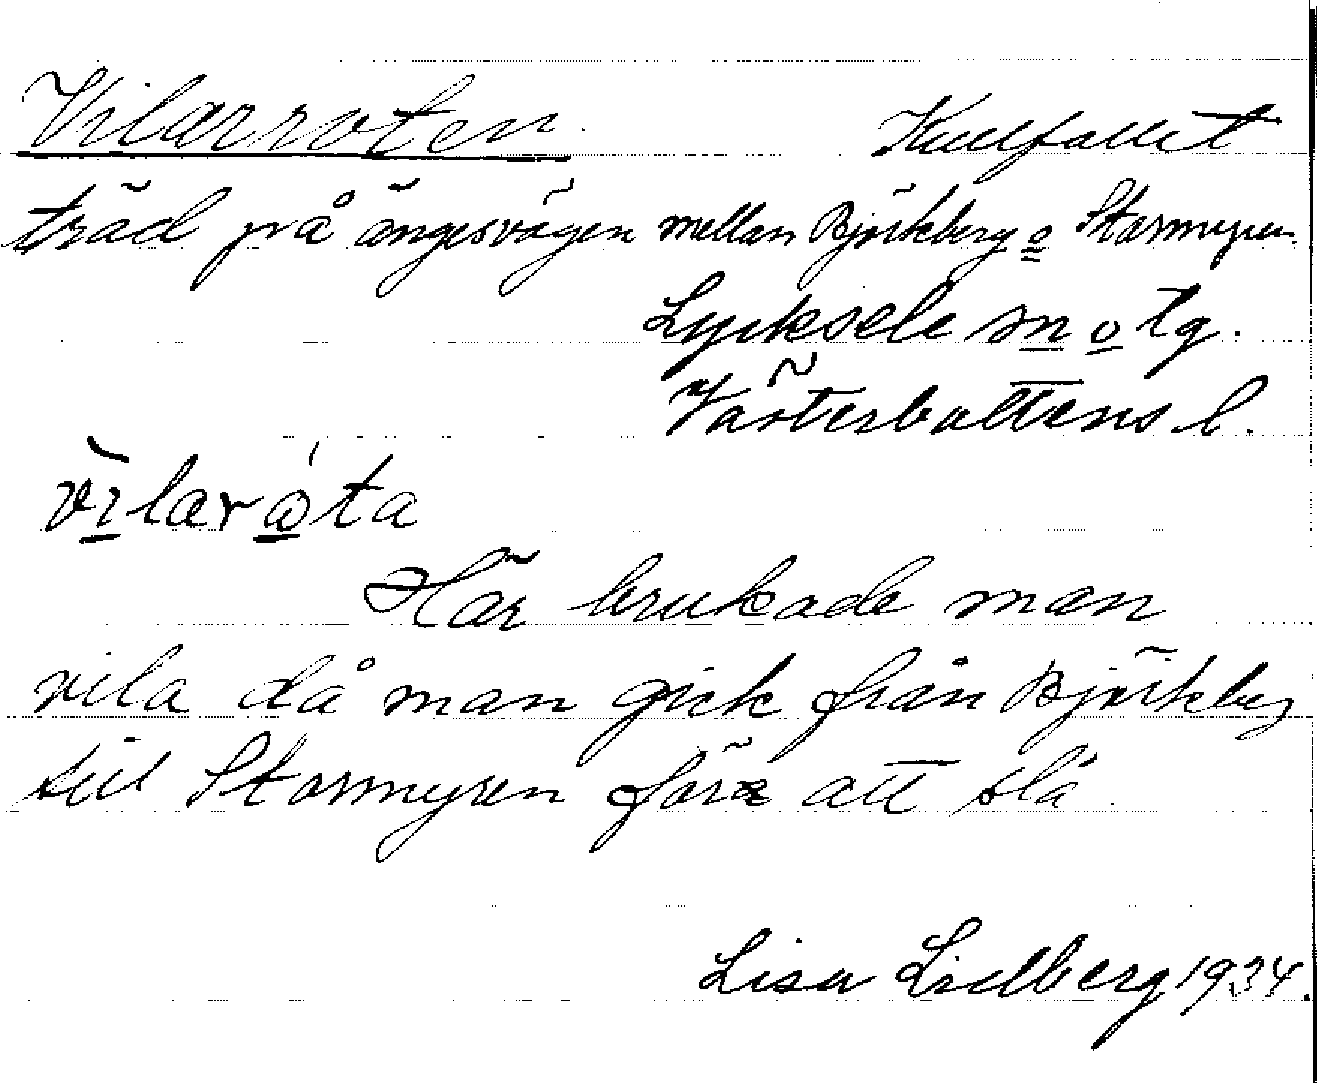 Vilarroten. Kullfallet
träd på ängesvägen mellan Björkberg o Stormyren.
Lycksele sn o tg.
Västerbottens l.
vìlarǻta
Här brukade man
vila då man gick från Björkberg
till Stormyren för att slå.
Lisa Lidberg 1934.